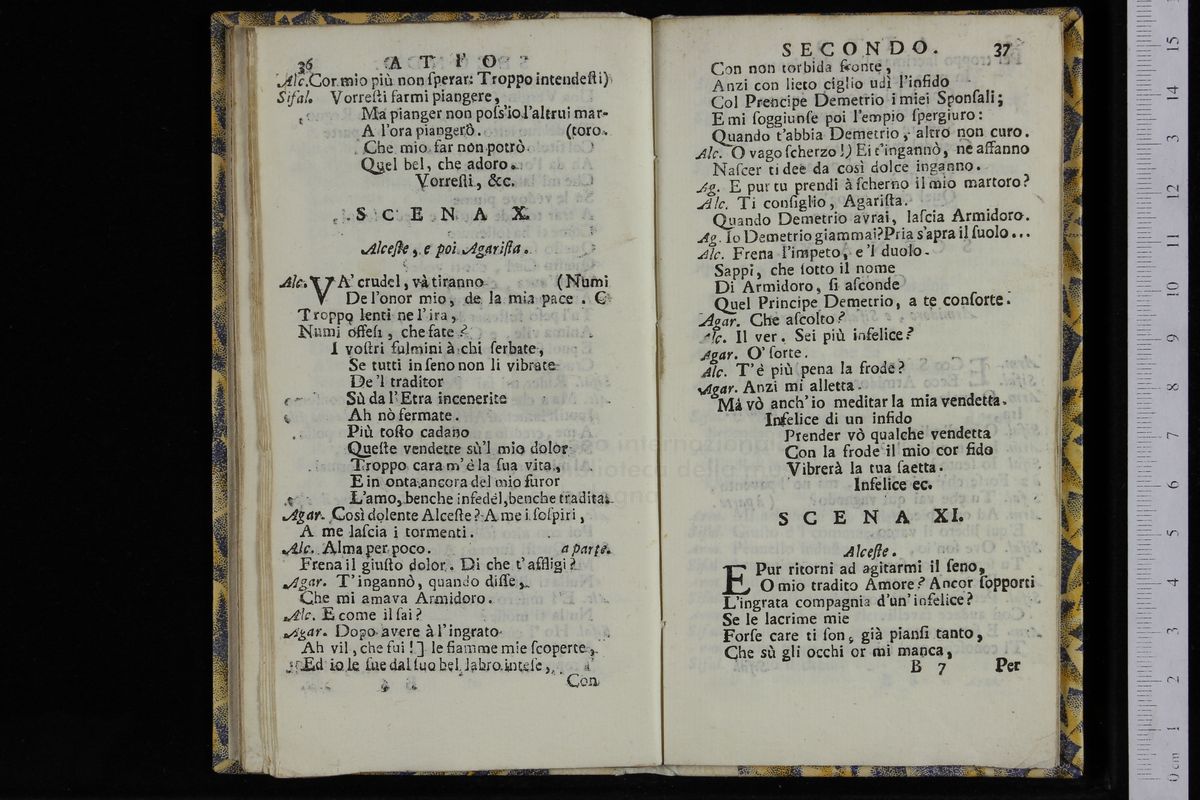 36 ATTO
Alc. Cor mio più non ſperar: Troppo intendeſti)
Sifal. Vorreſti farmi piangere,
Ma pianger non poſs'io l'altrui mar-
A l'ora piangerò. (toro.
Che mio far non potrò
Quel bel, che adoro.
Vorreſti, &c.
SCENA X.
Alceſte, e poi Agariſta.
Alc. VA' crudel, và tiranno (Numi
De l'onor mio, de la mia pace. O
Troppo lenti ne l'ira,
Numi offeſi, che fate?
I voſtri fulmini à chi ſerbate,
Se tutti in ſeno non li vibrate
De'l traditor
Sù da l'Etra incenerite
Ah nò fermate.
Più toſto cadano
Queſte vendette sù'l mio dolor
Troppo cara m'è la ſua vita,
E in onta ancora del mio furor
L'amo, benche infedel, benche tradita.
Agar. Così dolente Alceſte? A me i ſoſpiri,
A me laſcia i tormenti.
Alc. Alma per poco. a parte.
Frena il giuſto dolor. Di che t'affligi?
Agar. T'ingannò, quando diſſe,
Che mi amava Armidoro.
Alc. E come il ſai?
Agar. Dopo avere à l'ingrato
Ah vil, che fui!] le fiamme mie ſcoperte,
Ed io le ſue dal ſuo bel labro inteſe,
Con
SECONDO. 37
Con non torbida fronte,
Anzi con lieto ciglio udì l'infido
Col Prencipe Demetrio i miei Sponſali;
E mi ſoggiunſe poi l'empio ſpergiuro:
Quando t'abbia Demetrio, altro non curo.
Alc. O vago ſcherzo!) Ei t'ingannò, nè affanno
Naſcer ti dee da così dolce inganno.
Ag. E pur tu prendi à ſcherno il mio martoro?
Alc. Ti conſiglio, Agariſta.
Quando Demetrio avrai, laſcia Armidoro.
Ag. Io Demetrio giammai? Pria s'apra il ſuolo...
Alc. Frena l'impeto, e'l duolo.
Sappi, che ſotto il nome
Di Armidoro, ſi aſconde
Quel Principe Demetrio, a te conſorte.
Agar. Che aſcolto?
Alc. Il ver. Sei più infelice?
Agar. O' ſorte.
Alc. T'è più pena la frode?
Agar. Anzi mi alletta.
Mà vò anch'io meditar la mia vendetta.
Infelice di un infido
Prender vò qualche vendetta
Con la frode il mio cor fido
Vibrerà la tua ſaetta.
Infelice ec.
SCENA XI.
Alceſte.
E Pur ritorni ad agitarmi il ſeno,
O mio tradito Amore? Ancor ſopporti
L'ingrata compagnia d'un'infelice?
Se le lacrime mie
Forſe care ti ſon, già pianſi tanto,
Che sù gli occhi or mi manca,
B 7 Per